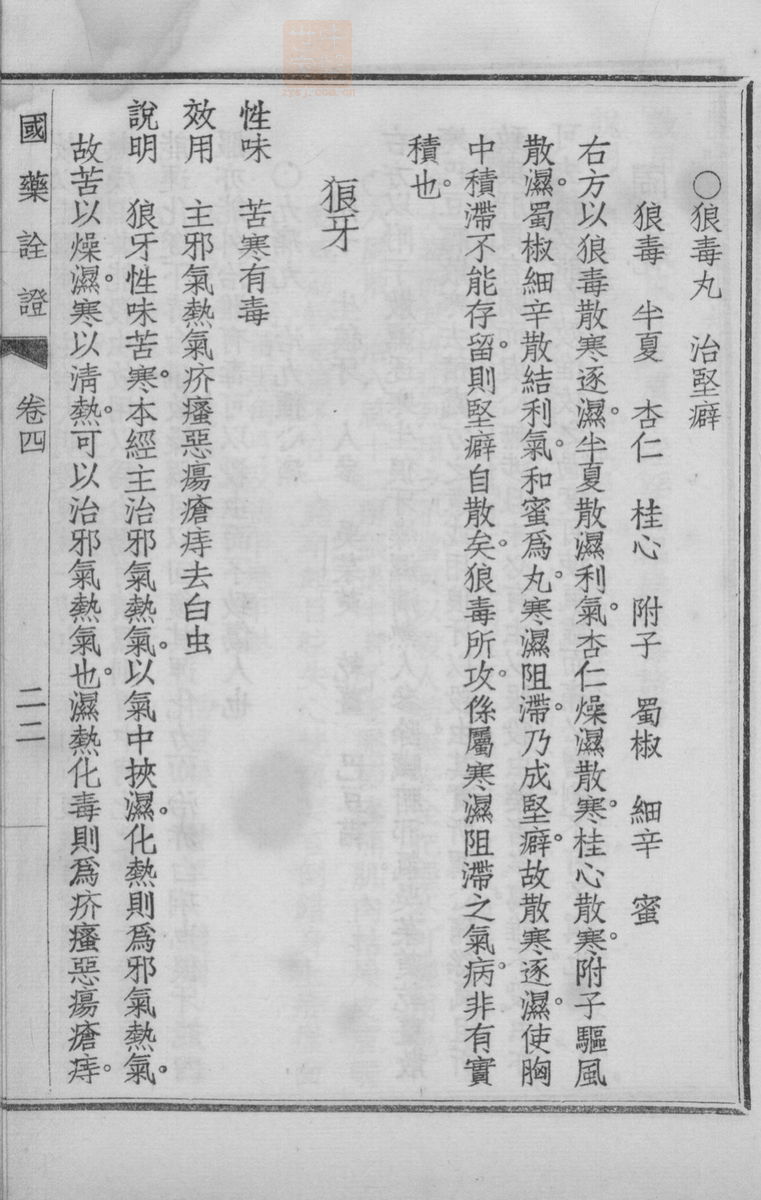 ○狼毒丸　治堅癖
狼毒　半夏　杏仁　桂心　附子　蜀椒　細辛　蜜
右方以狼毒散寒逐濕。半夏散濕利氣。杏仁燥濕散寒。桂心散寒。附子驅風
散濕。蜀椒細辛散結利氣。和蜜爲丸。寒濕阻滯。乃成堅癖。故散寒逐濕。使胸
中積滯不能存留。則堅癖自散矣。狼毒所攻。係屬寒濕阻滯之氣病。非有實
積也。
狼牙
性味　苦寒有毒
效用　主邪氣熱氣疥瘙惡瘍瘡痔去白虫
說明　狼牙性味苦寒。本經主治邪氣熱氣。以氣中挾濕。化熱則爲邪氣熱氣。
故苦以燥濕。寒以清熱。可以治邪氣熱氣也。濕熱化毒則爲疥瘙惡瘍瘡痔。
國藥詮證　卷四　二二